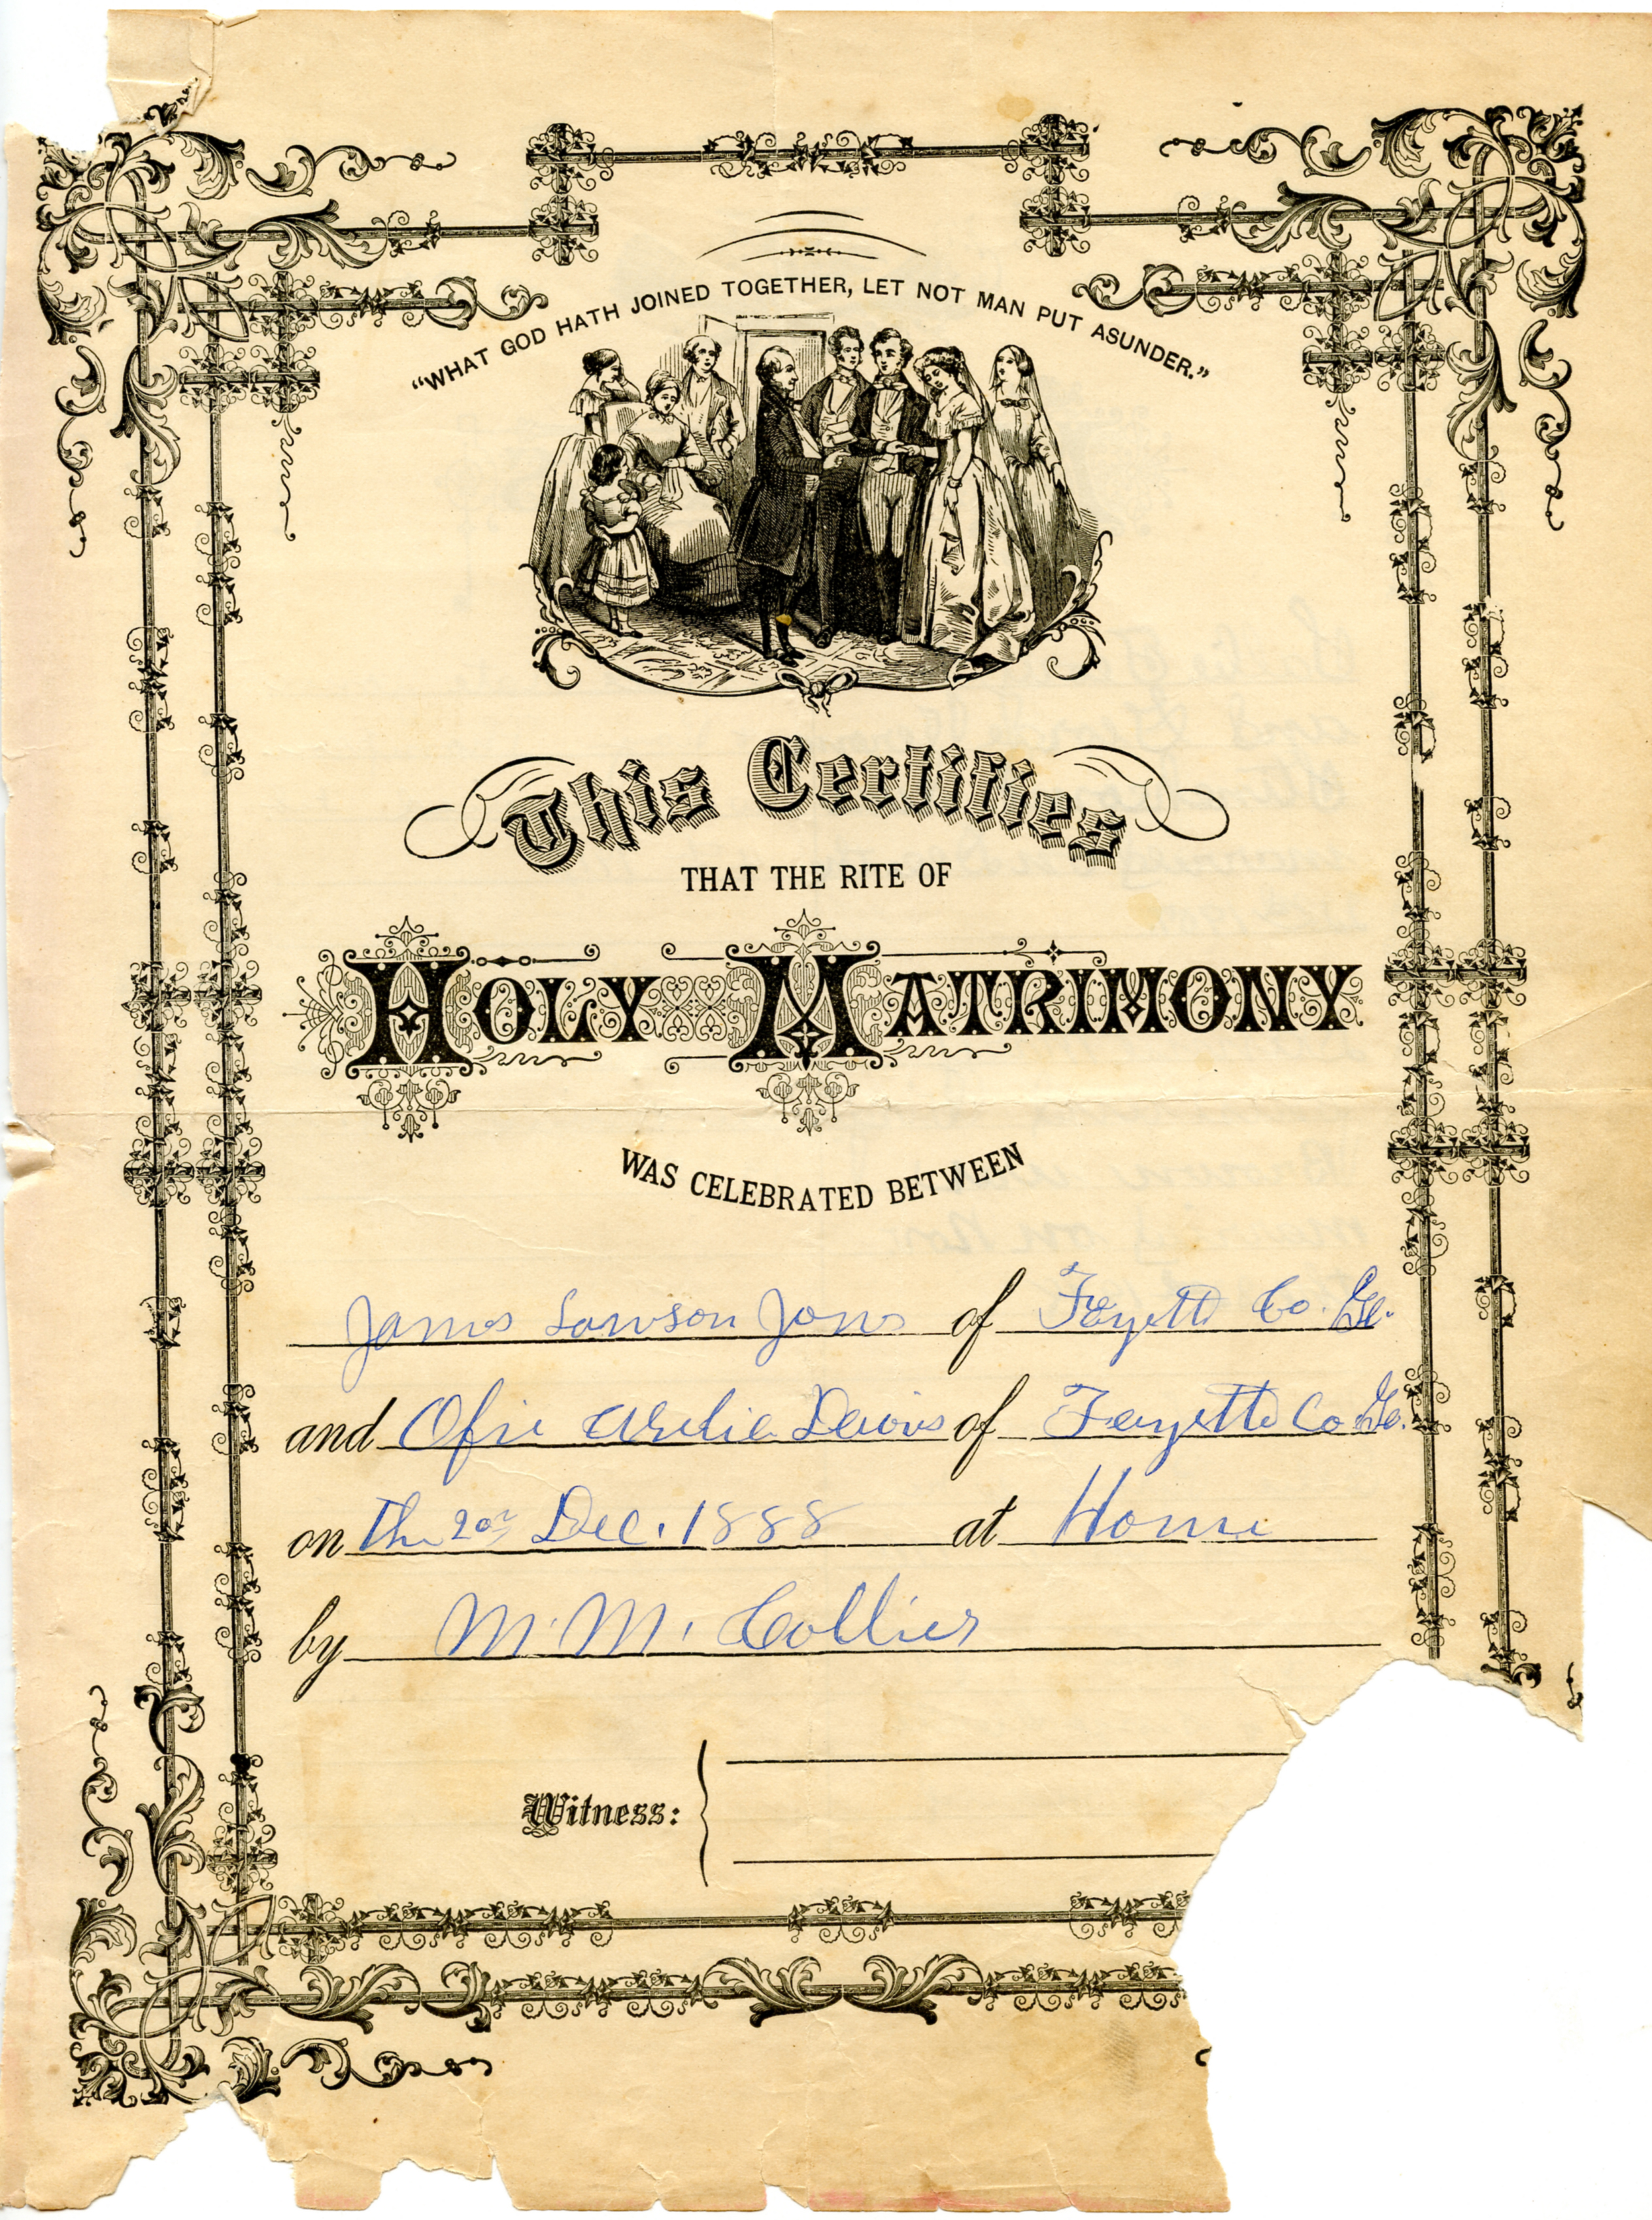 "WHAT GOD HATH JOINED TOGETHER, LET NOT MAN PUT ASUNDER."
This Certifies
THAT THE RITE OF
HOLY MATRIMONY
WAS CELEBRATED BETWEEN
James Lawson Jones of Fayette Co. Ga.
and Davis of Fayette Co Ga.
on The 20th Dec. 1888 at Home
by M. M. Collier
Witness: